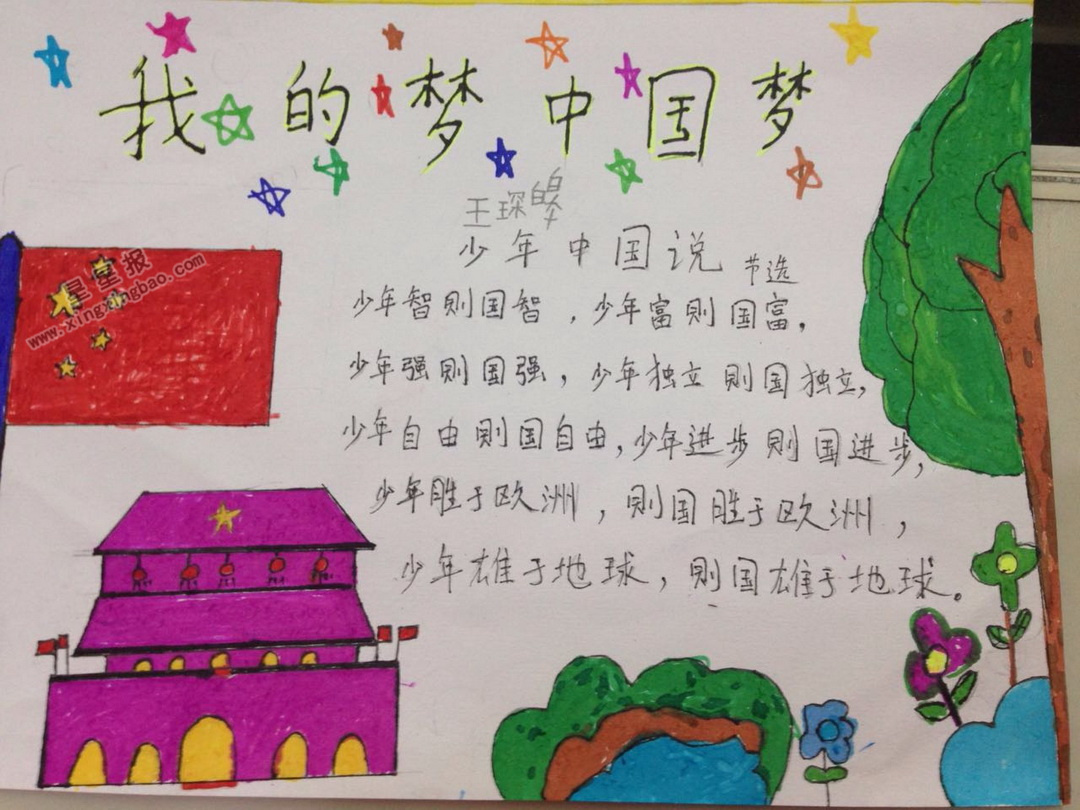 我的梦中国梦
王琛皞
少年中国说 节选
少年智则国智，少年富则国富，
少年强则国强，少年独立则国独立，
少年自由则国自由，少年进步则国进步，
少年胜于欧洲，则国胜于欧洲，
少年雄于地球，则国雄于地球。
星星报
www.xingxingbao.com